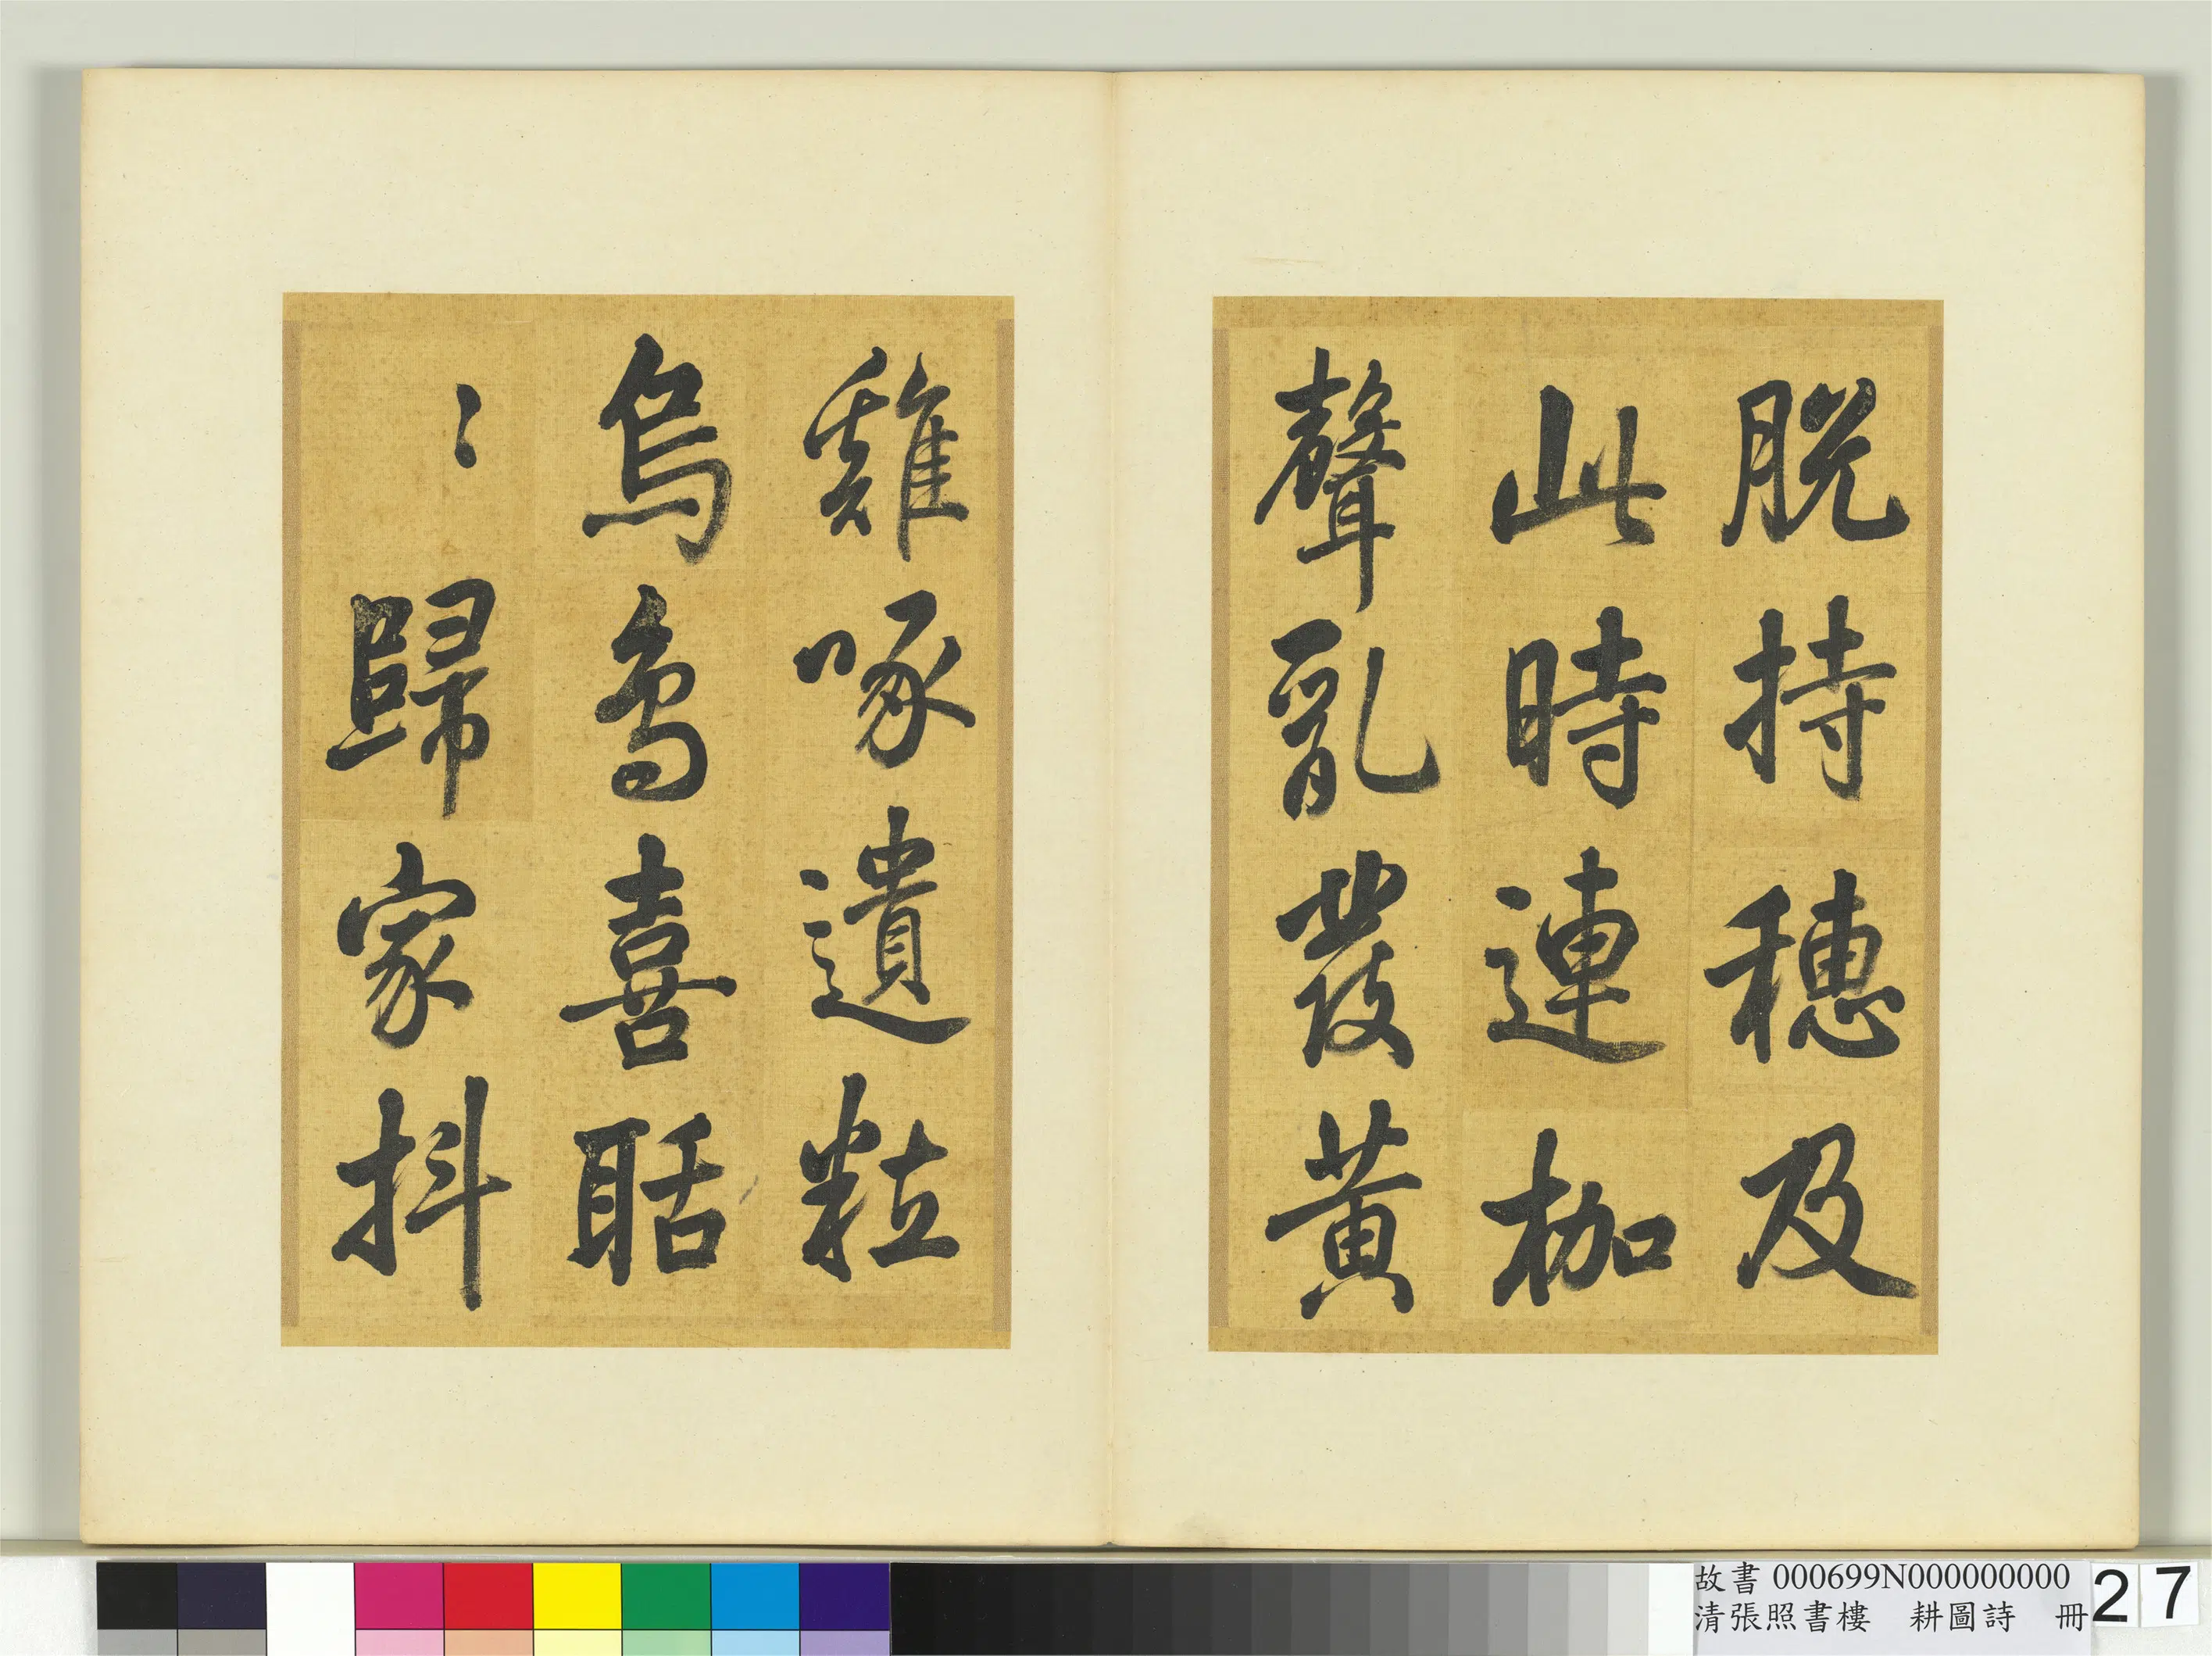 脫持穗及
此時連枷
聲亂發黃
雞啄遺粒
烏鳥喜聒
〻歸家抖
故書 000699N000000000
清張照書樓　耕圖詩　冊
27